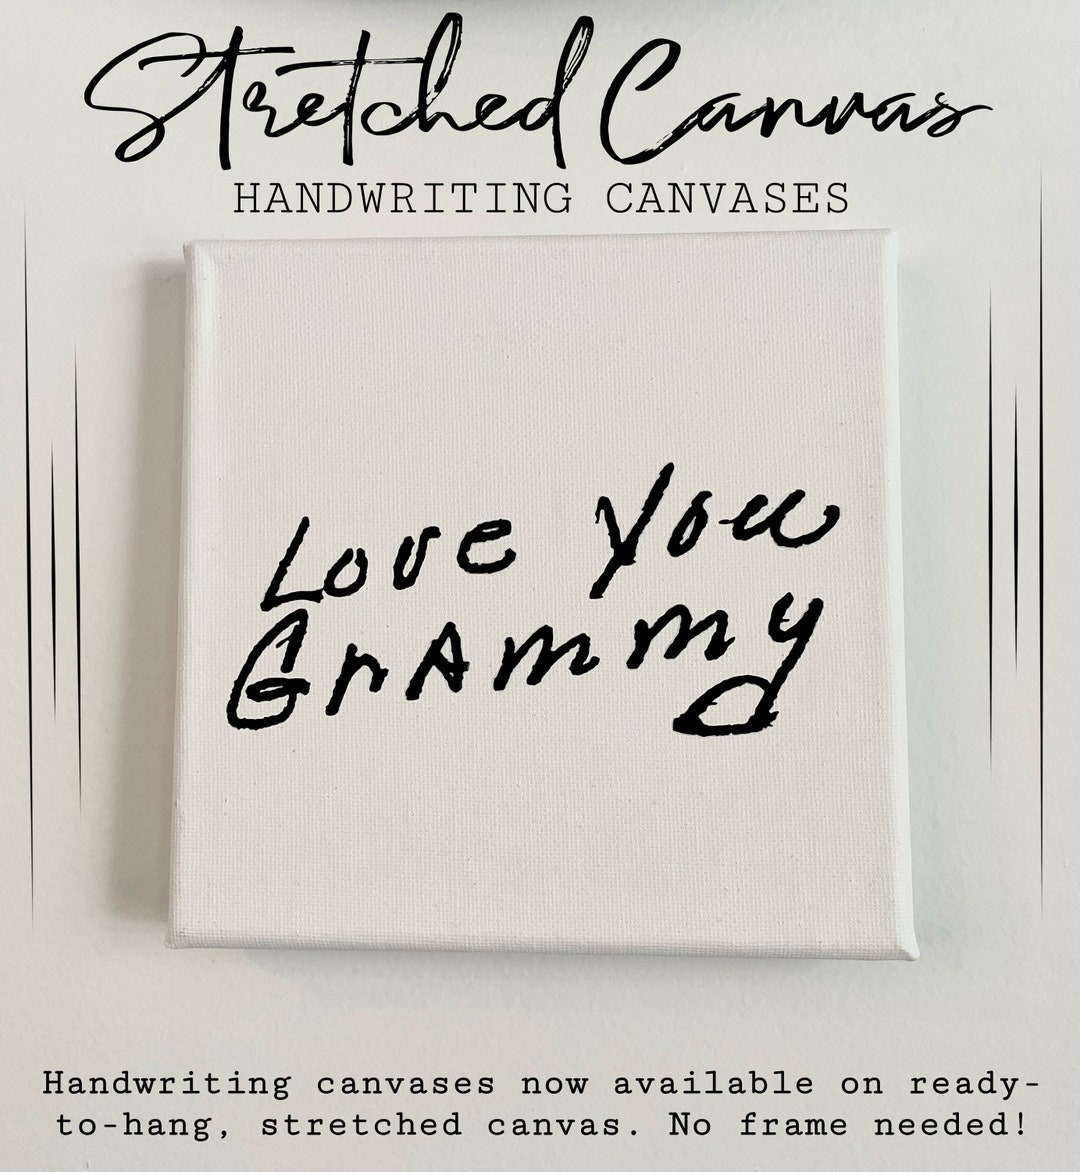 Stretched Canvas
HANDWRITING CANVASES
Love You
GrAmmy
Handwriting canvases now available on ready-
to-hang, stretched canvas. No frame needed!